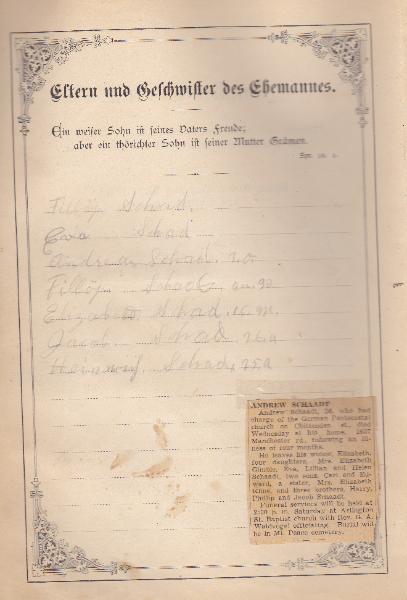 Eltern und Geschwister des Ehemannes.
Ein weiser Sohn ist seines Vaters Freude;
aber ein thörichter Sohn ist seiner Mutter Grämen.
Spr. 10, 1.
Fillöp Schad.
Eva Schad
Andreas Schad.
Fillöp Schad
Elizabeth Schad.
Jacob Schad
Heinrich Schad, 25 a
ANDREW SCHAADT
Andrew Schaadt, 56, who had
charge of the German Pentecostal
church on Chittenden st., died
Wednesday at his home, 1867
Manchester rd., following an ill-
ness of four months.
He leaves his widow, Elizabeth,
four daughters, Mrs. Elizabeth
Eva, Lillian and Helen
Schaadt, two sons, Carl and Ed-
ward, a sister, Mrs. Elizabeth
and three brothers, Harry,
Phillip and Jacob Schaadt.
Funeral services will be held at
p. m. Saturday at Arlington
St. Baptist church with Rev. G. A.
Waldvogel officiating. Burial will
be in Mt. Peace cemetery.